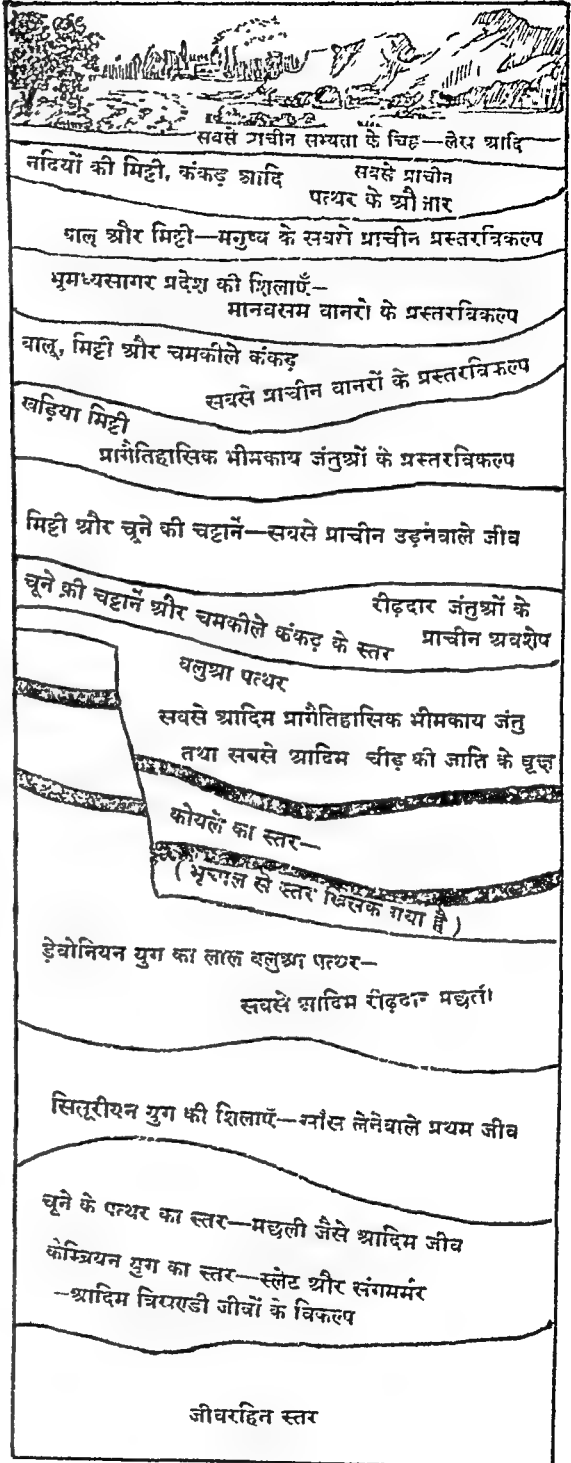 सबसे प्राचीन सभ्यता के चिह्न—लेख आदि
नदियों की मिट्टी, कंकड़ आदि
सबसे प्राचीन
पत्थर के औजार
बालू और मिट्टी—मनुष्य के सबसे प्राचीन प्रस्तरविकल्प
भूमध्यसागर प्रदेश की शिलाएँ—
मानवसम वानरों के प्रस्तरविकल्प
बालू, मिट्टी और चमकीले कंकड़
सबसे प्राचीन वानरों के प्रस्तरविकल्प
खड़िया मिट्टी
प्रागैतिहासिक भीमकाय जंतुओं के प्रस्तरविकल्प
मिट्टी और चूने की चट्टानें—सबसे प्राचीन उड़नेवाले जीव
चूने की चट्टानें और चमकीले कंकड़ के स्तर
रीढ़दार जंतुओं के
प्राचीन अवशेष
बलुआ पत्थर
सबसे आदिम प्रागैतिहासिक भीमकाय जंतु
तथा सबसे आदिम चीड़ की जाति के वृक्ष
कोयले का स्तर—
(भूचाल से स्तर खिसक गया है)
डेवोनियन युग का लाल बलुआ पत्थर—
सबसे आदिम रीढ़दार मछली
सिलूरीयन युग की शिलाएँ—साँस लेनेवाले प्रथम जीव
चूने के पत्थर का स्तर—मछली जैसे आदिम जीव
केम्ब्रियन युग का स्तर—स्लेट और संगमर्मर
—आदिम त्रिखण्डी जीवों के विकल्प
जीवरहित स्तर